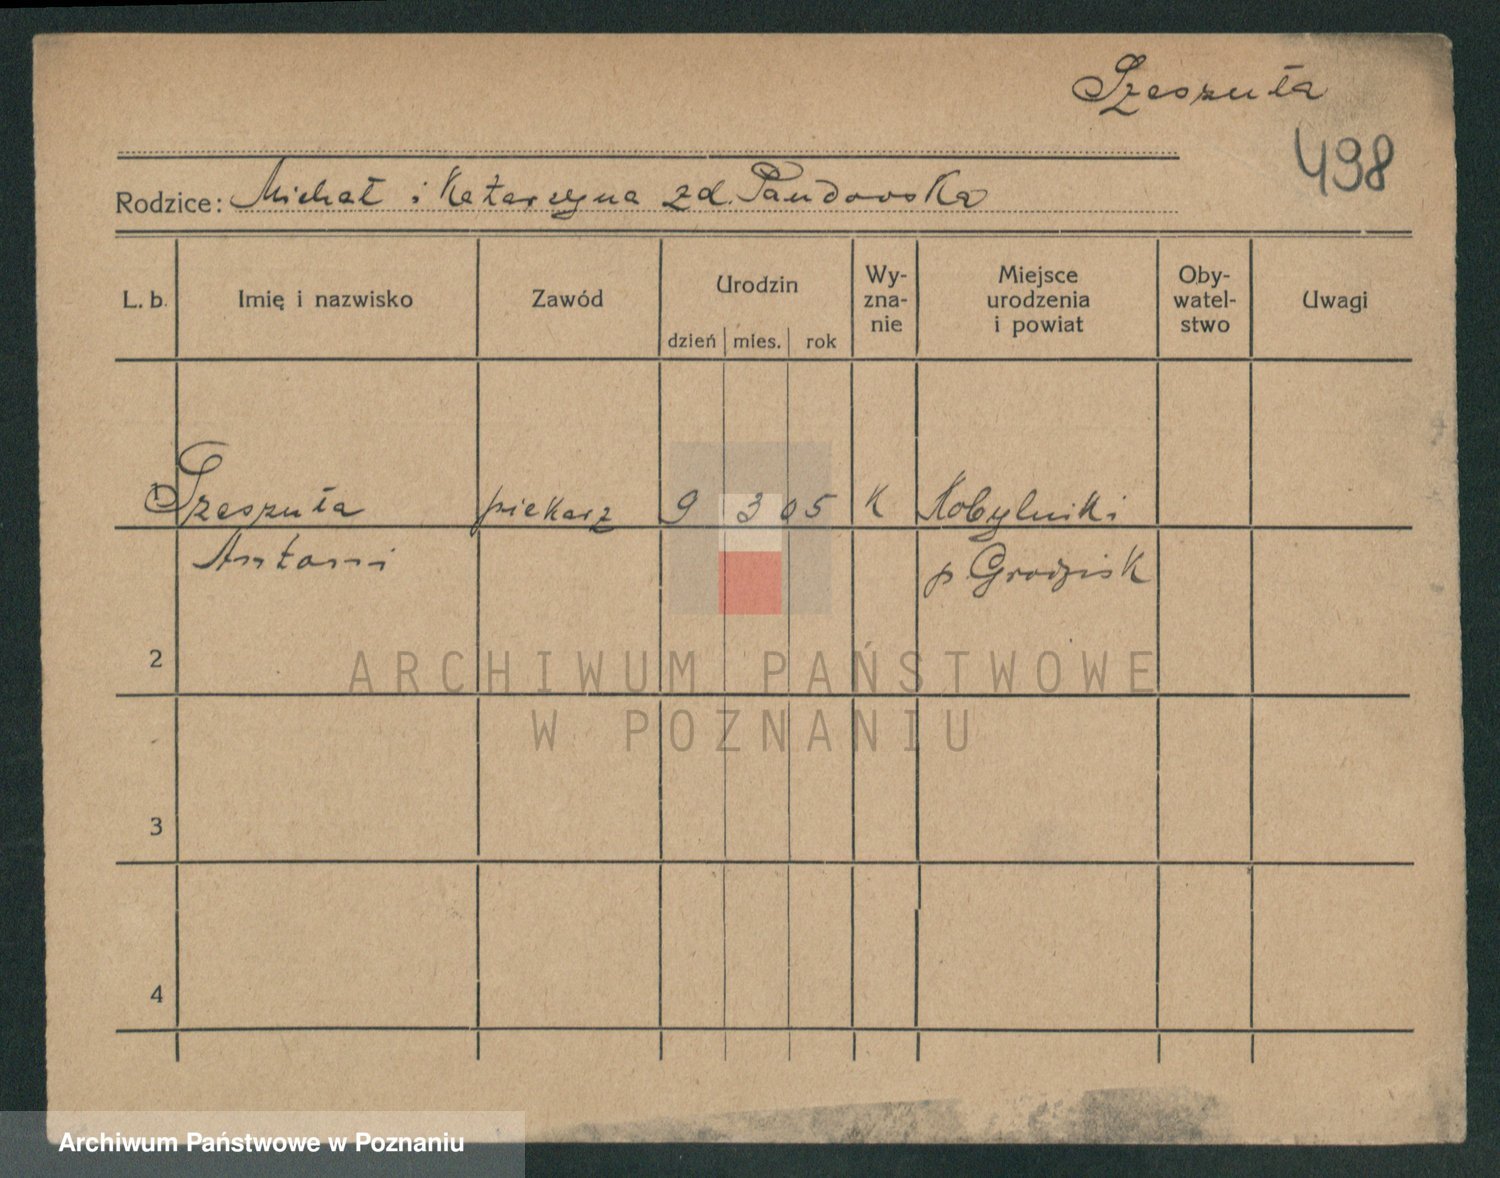 Szeszuła
498
Rodzice: Michał i Katarzyna zd. Pandowska
L. b. Imię i nazwisko Zawód Urodzin dzień mies. rok Wy-zna-nie Miejsce urodzenia i powiat Oby-watel-stwo Uwagi
1 Szeszuła piekarz 9 3 05 K Kobylniki
Antoni p. Grodzisk
2
ARCHIWUM PAŃSTWOWE
W POZNANIU
3
4
Archiwum Państwowe w Poznaniu